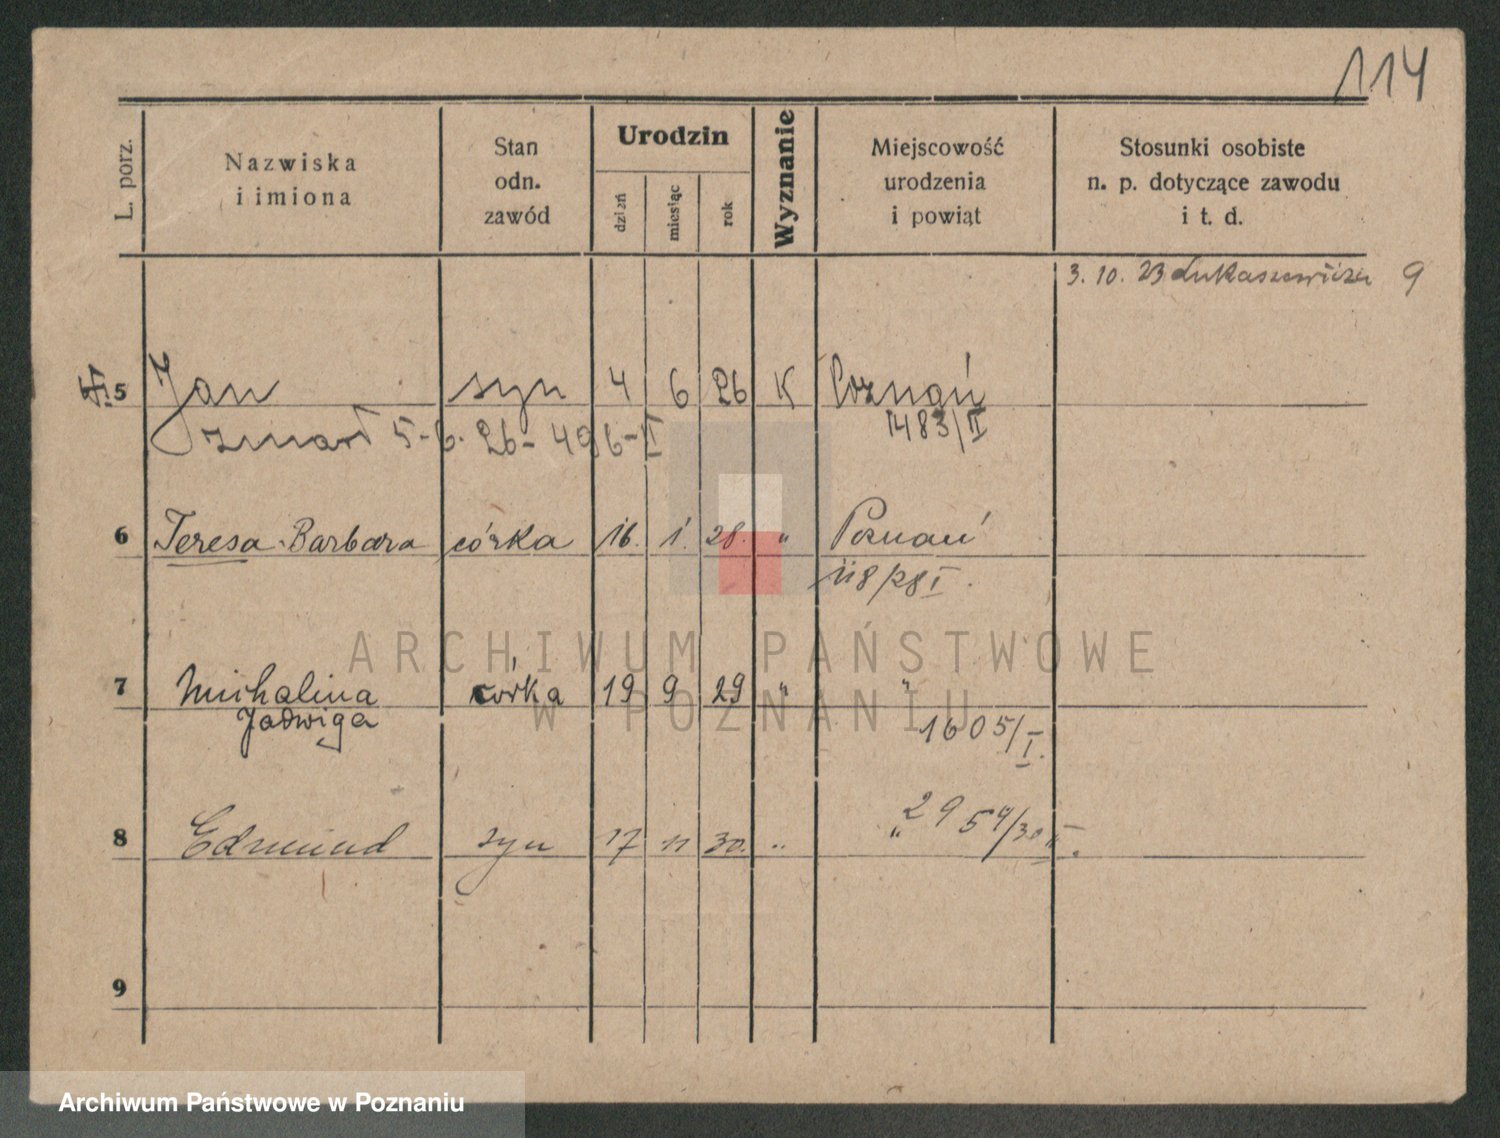 114
L. porz.
Nazwiska
i imiona
Stan
odn.
zawód
Urodzin
dzień
miesiąc
rok
Wyznanie
Miejscowość
urodzenia
i powiąt
Stosunki osobiste
n. p. dotyczące zawodu
i t. d.
3. 10. 23 Łukaszewicza 9
5 Jan syn 4 6 26 K Poznań
zmarł 5-6. 26 - 496-II 1483/II
6 Teresa Barbara córka 16. 1. 28. " Poznań
118/28 I.
7 Michalina córka 19 9 29 " "
Jadwiga 1605/I.
8 Edmund syn 17 11 30. " " 2959/30 II.
9
ARCHIWUM PAŃSTWOWE
W POZNANIU
Archiwum Państwowe w Poznaniu